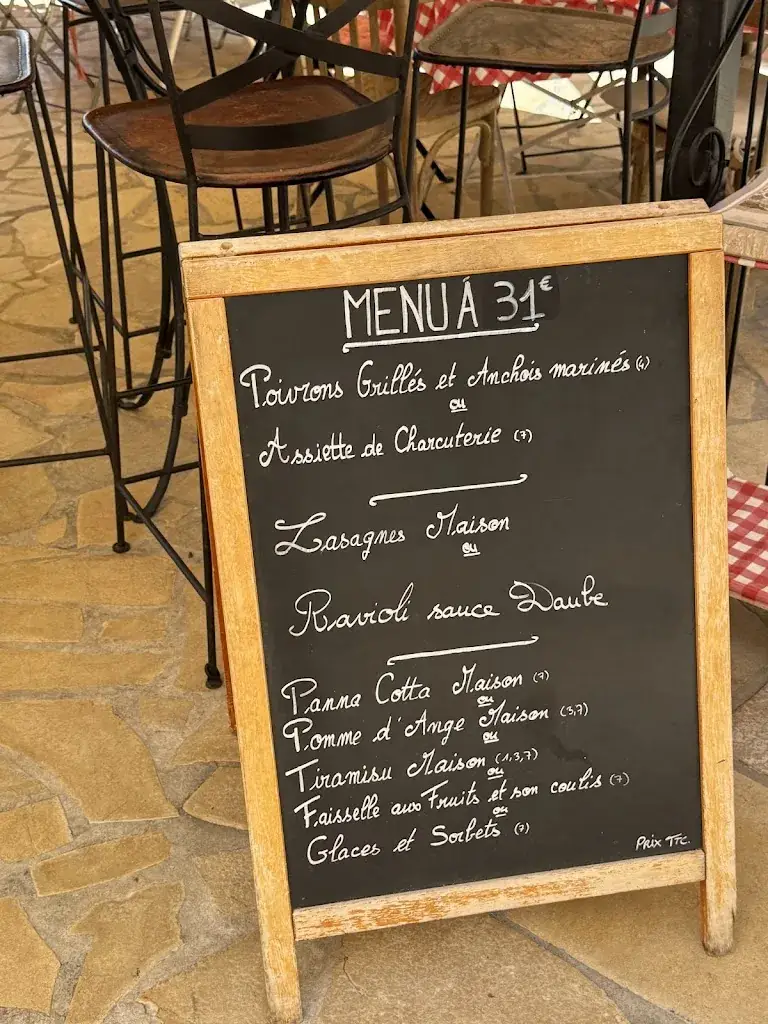 MENU Á 31€
Poivrons Grillés et Anchois marinés (4)
ou
Assiette de Charcuterie (7)
Lasagnes Maison
ou
Ravioli sauce Daube
Panna Cotta Maison (7)
ou
Pomme d'Ange Maison (3,7)
ou
Tiramisu Maison (1,3,7)
ou
Faisselle aux Fruits et son coulis (7)
ou
Glaces et Sorbets (7)
Prix TTC.